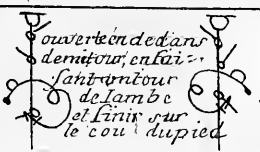 ouverte en dedans
demitour, en fai-
sant un tour
de Iambe
et finir sur
le cou du pied